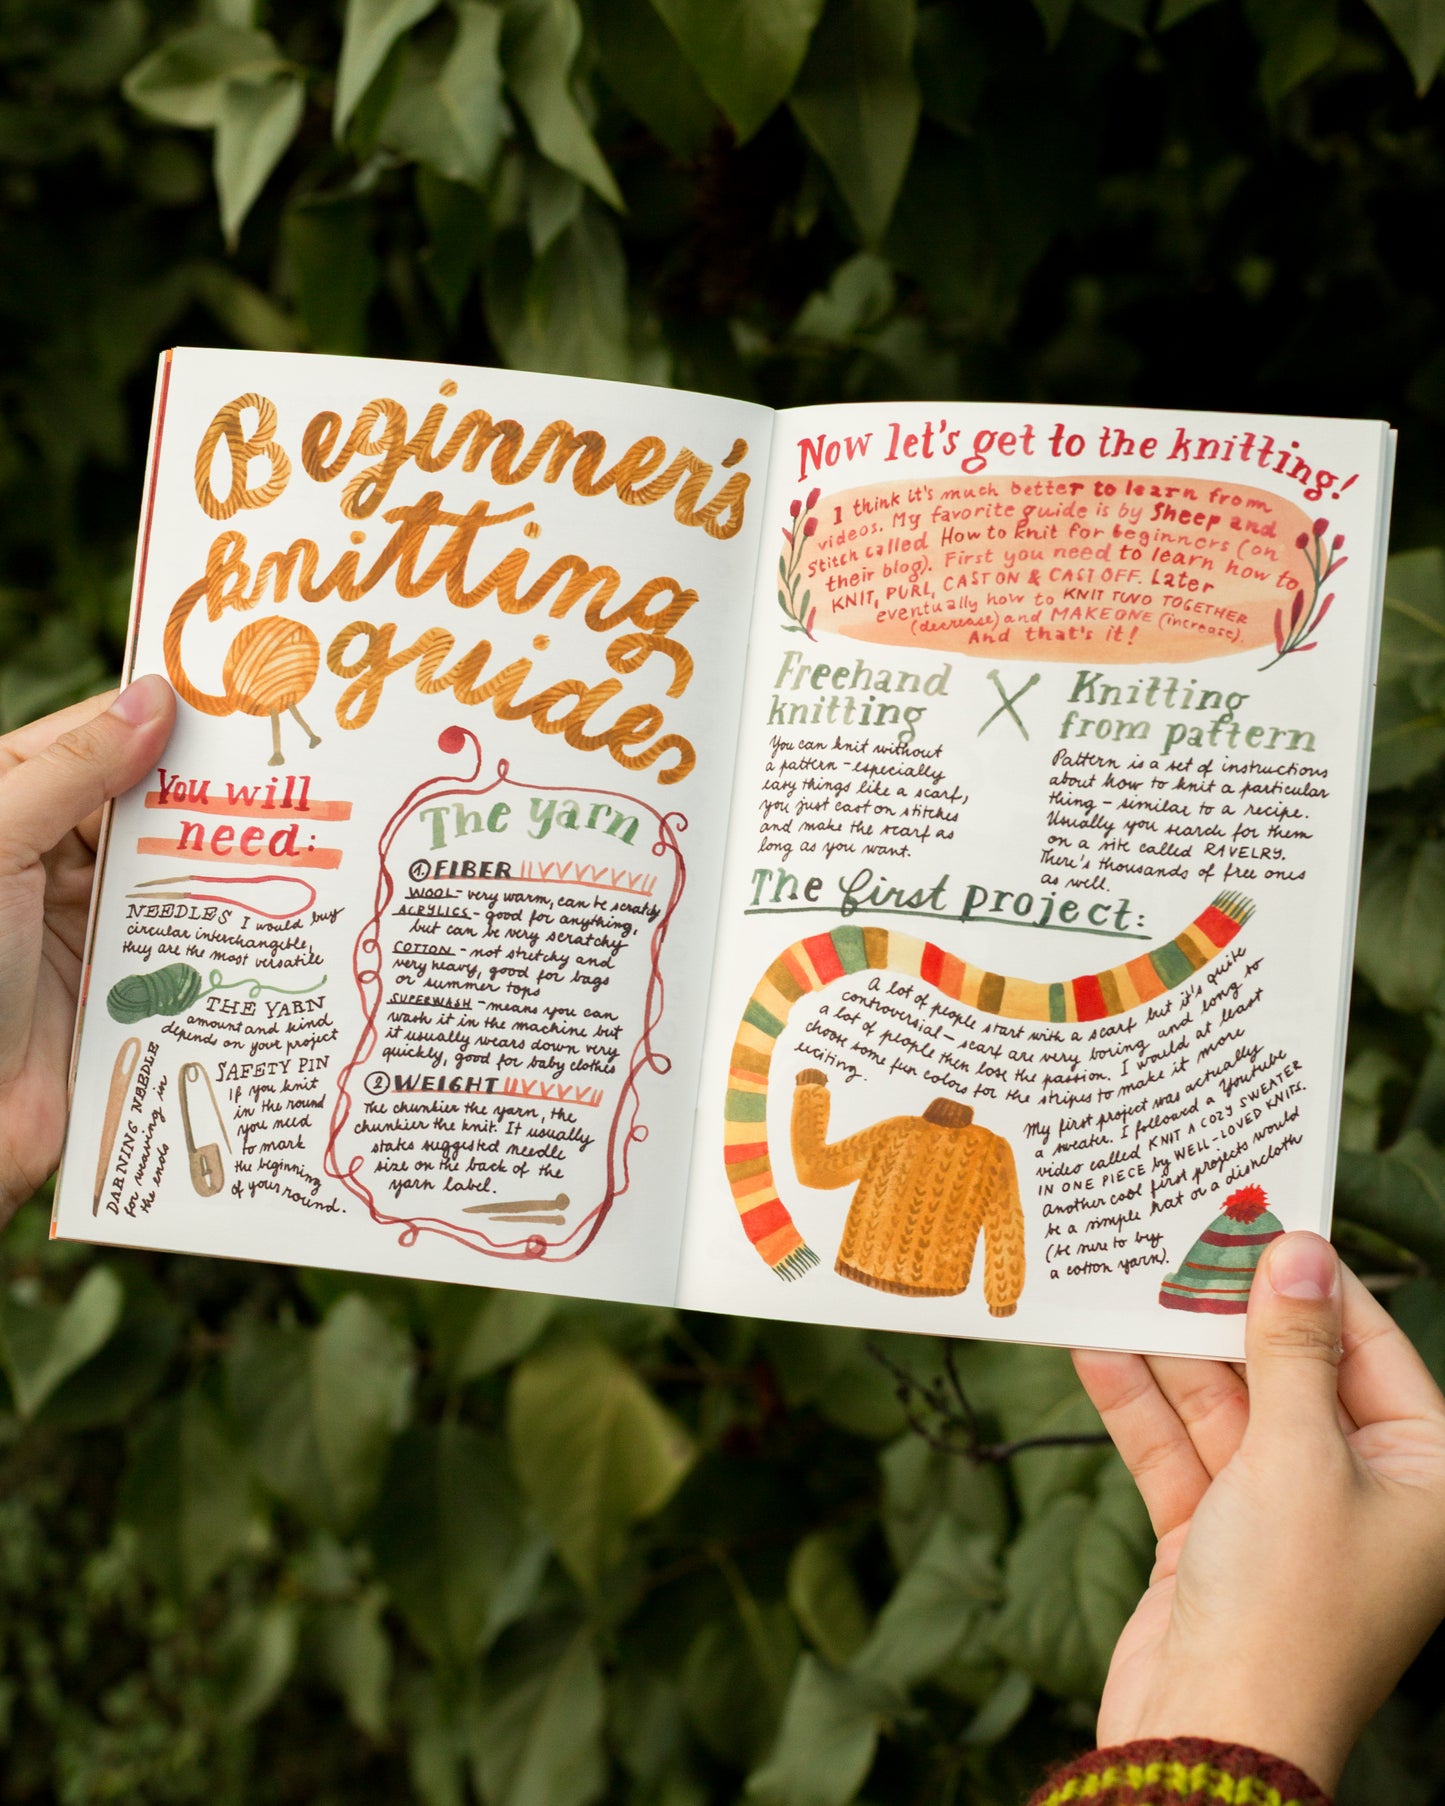 Beginner's
knitting
guide
You will
need:
NEEDLES I would buy
circular interchangeble,
they are the most versatile
THE YARN
amount and kind
depends on your project
DARNING NEEDLE
for weaving in
the ends
SAFETY PIN
If you knit
in the round
you need
to mark
the beginning
of your round.
The yarn
1. FIBER
WOOL - very warm, can be scratchy
ACRYLICS - good for anything,
but can be very scratchy
COTTON - not stretchy and
very heavy, good for bags
or summer tops
SUPERWASH - means you can
wash it in the machine but
it usually wears down very
quickly, good for baby clothes
2 WEIGHT
The chunkier the yarn, the
chunkier the knit. It usually
states suggested needle
size on the back of the
yarn label.
Now let's get to the knitting!
I think it's much better to learn from
videos. My favorite guide is by Sheep and
Stitch called How to knit for beginners (on
their blog). First you need to learn how to
KNIT, PURL, CAST ON & CAST OFF. Later
eventually how to KNIT TWO TOGETHER
(decrease) and MAKE ONE (increase).
And that's it!
Freehand
knitting
You can knit without
a pattern - especially
easy things like a scarf,
you just cast on stitches
and make the scarf as
long as you want.
Knitting
from pattern
Pattern is a set of instructions
about how to knit a particular
thing - similar to a recipe.
Usually you search for them
on a site called RAVELRY.
There's thousands of free ones
as well.
The first project:
A lot of people start with a scarf but it's quite
controversial - scarf are very boring and long to
a lot of people then lose the passion. I would at least
choose some fun colors for the stripes to make it more
exciting.
My first project was actually
a sweater. I followed a Youtube
video called KNIT A COZY SWEATER
IN ONE PIECE by WELL-LOVED KNITS.
Another cool first projects would
be a simple hat or a dishcloth
(be sure to buy
a cotton yarn).